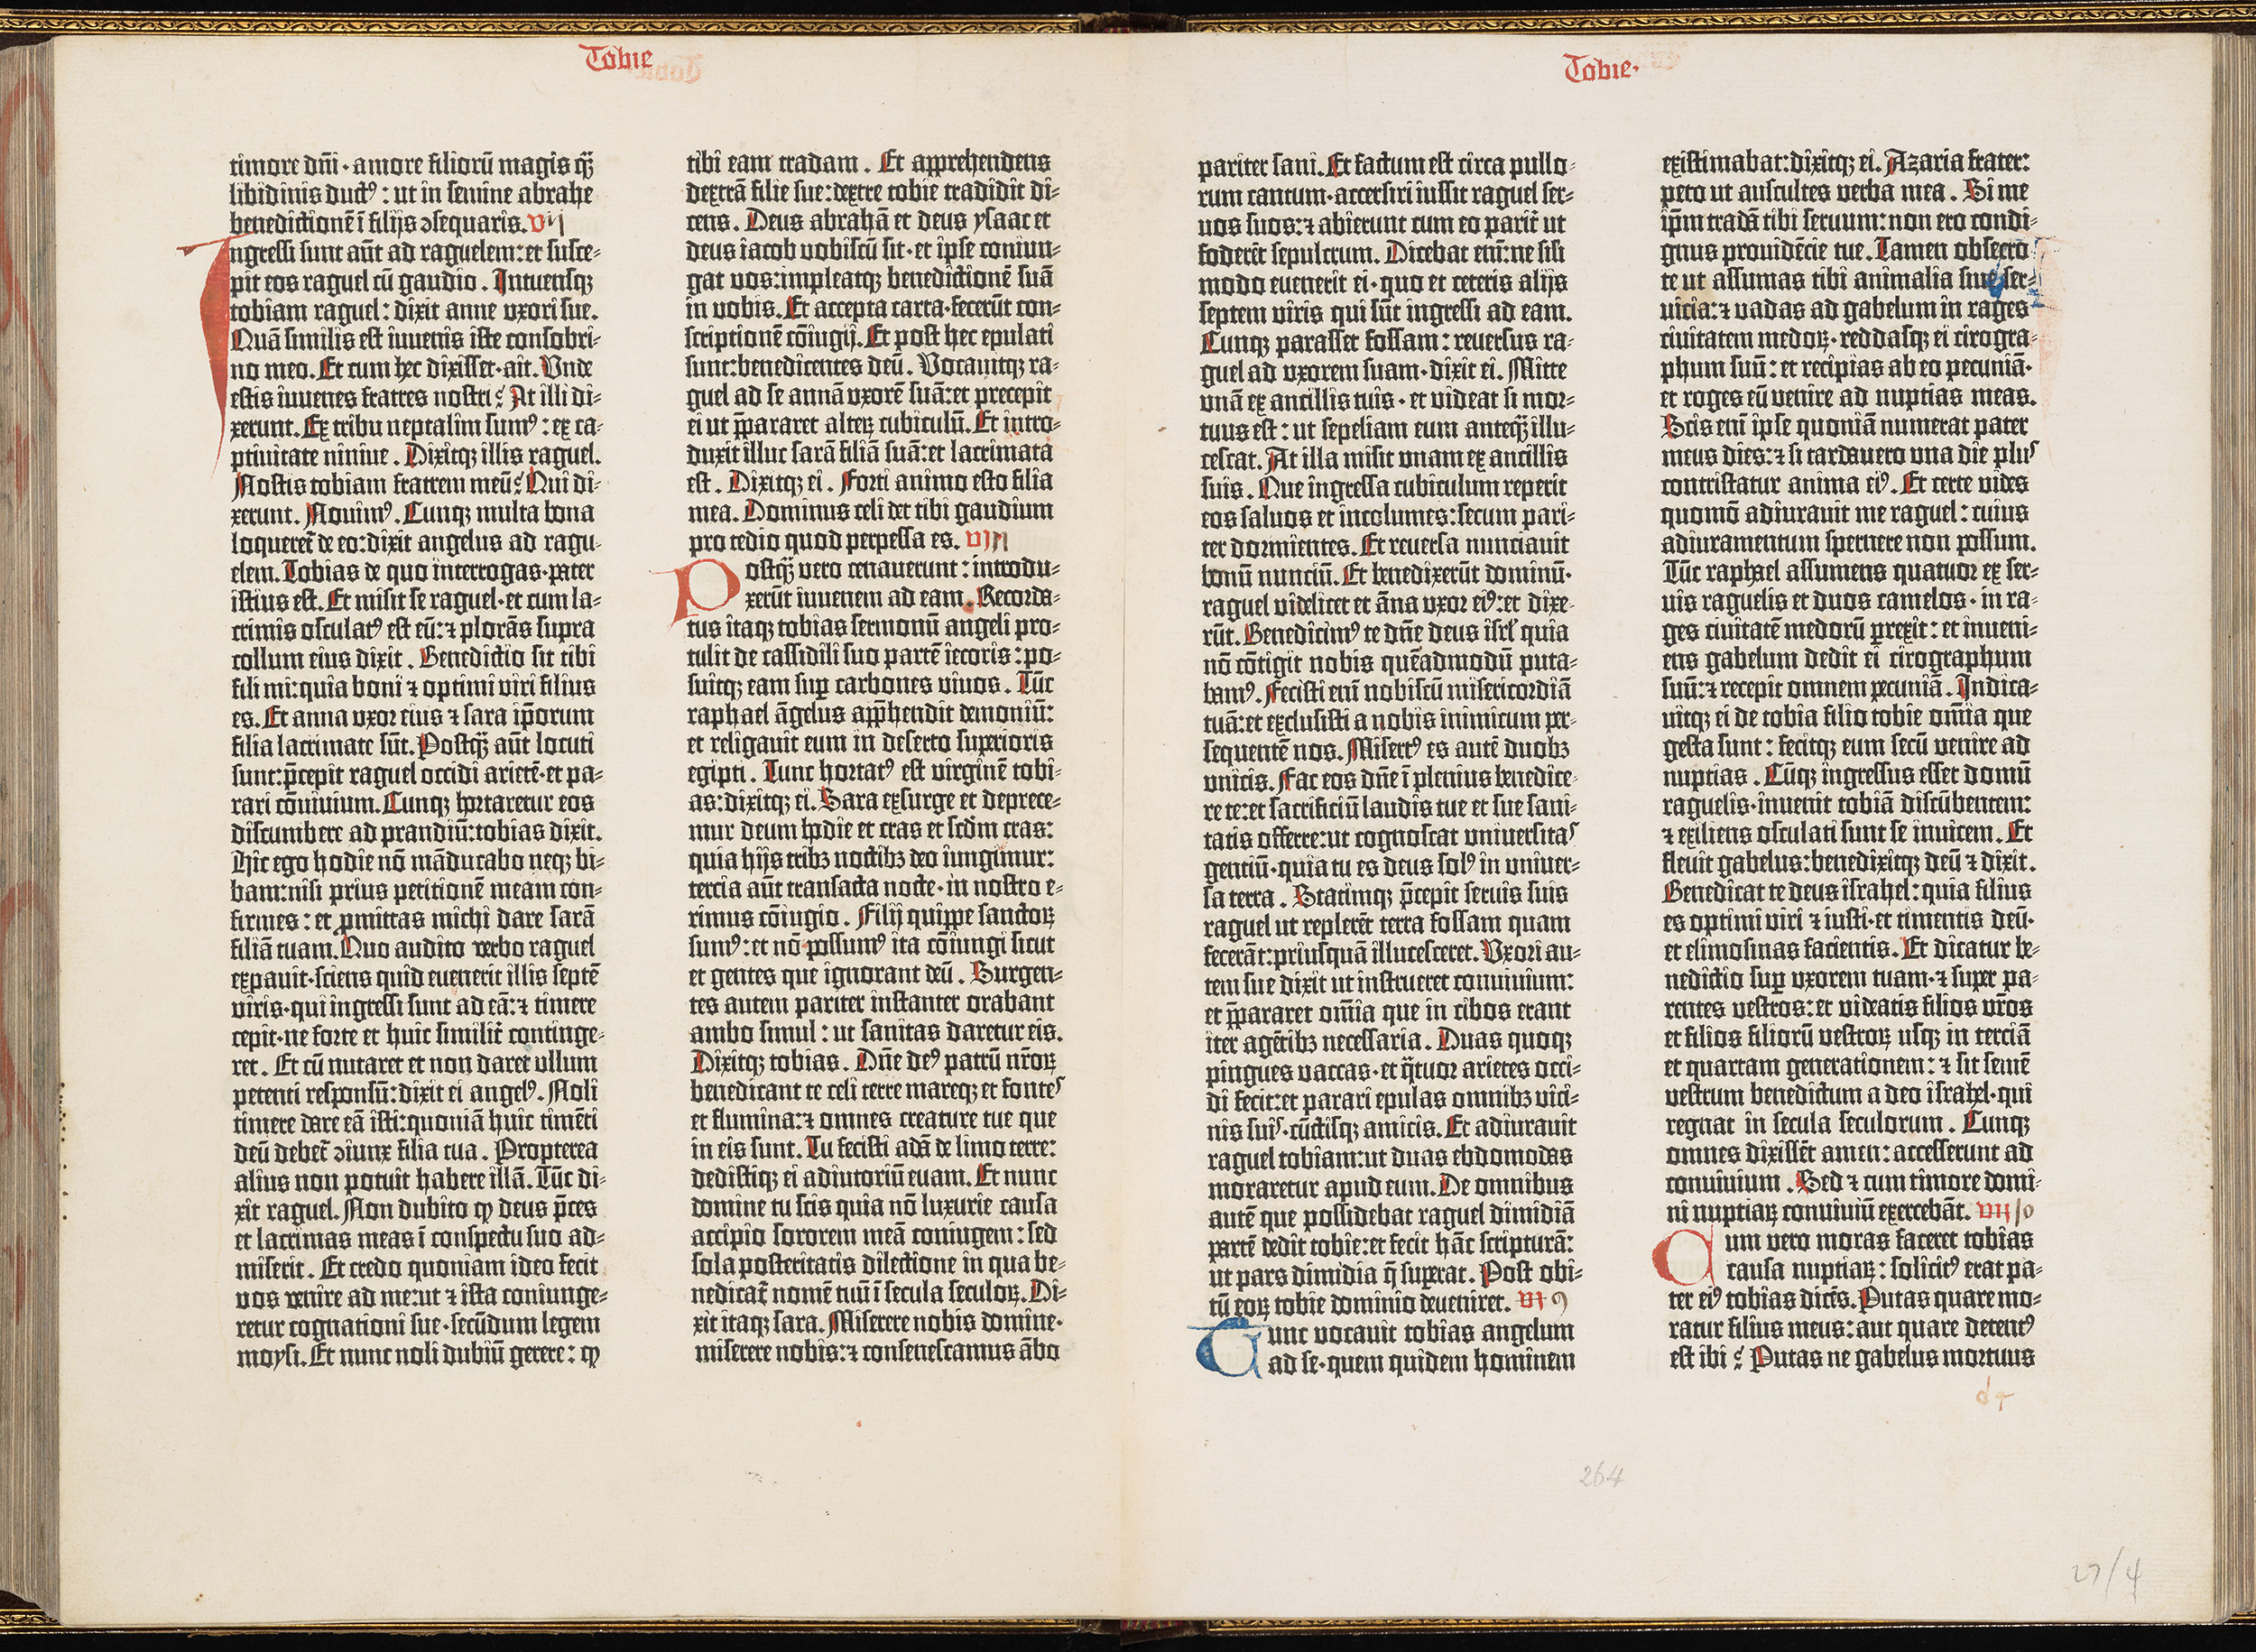 Tobie
timore dñi· amore filiorũ magis q̃
libidinis duct⁹: ut in semine abrahe
benedictionẽ ĩ filijs ↄsequaris. vij
Ingressi sunt aũt ad raguelem: et susce⸗
pit eos raguel cũ gaudio. Intuensqꝫ
tobiam raguel: dixit anne uxori sue.
Quã similis est iuvenis iste consobri⸗
no meo. Et cum hec dixisset· ait. Unde
estis iuuenes fratres nostri? At illi di⸗
xerunt. Ex tribu neptalim sum⁹: ex ca⸗
ptiuitate niniue. Dixitqꝫ illis raguel.
Nostis tobiam fratrem meũ? Qui di⸗
xerunt. Nouim⁹. Cunqꝫ multa bona
loqueret̃ de eo: dixit angelus ad ragu⸗
elem. Tobias de quo interrogas· pater
istius est. Et misit se raguel· et cum la⸗
crimis osculat⁹ est eũ: ⁊ plorãs supra
collum eius dixit. Benedictio sit tibi
fili mi: quia boni ⁊ optimi viri filius
es. Et anna uxor eius ⁊ sara ip̃orum
filia lacrimate sũt. Postq̃ aũt locuti
sunt: p̃cepit raguel occidi arietẽ· et pa⸗
rari cõuiuium. Cunqꝫ hortaretur eos
discumbere ad prandiũ: tobias dixit.
Hic ego hodie nõ mãducabo neqꝫ bi⸗
bam: nisi prius petitionẽ meam con⸗
firmes: et ꝓmittas michi dare sarã
filiã tuam. Quo audito verbo raguel
expauit· sciens quid euenerit illis septẽ
viris· qui ingressi sunt ad eã: ⁊ timere
cepit· ne forte et huic similit̃ continge⸗
ret. Et cũ nutaret et non daret ullum
petenti responsũ: dixit ei angel⁹. Noli
timere dare eã isti: quoniã huic timẽti
deũ debet̃ ↄiunx filia tua. Propterea
alius non potuit habere illã. Tũc di⸗
xit raguel. Non dubito ꝙ deus p̃ces
et lacrimas meas ĩ conspectu suo ad⸗
miserit. Et credo quoniam ideo fecit
vos venire ad me: ut ⁊ ista coniunge⸗
retur cognationi sue· secũdum legem
moysi. Et nunc noli dubiũ gerere: ꝙ
tibi eam tradam. Et apprehendens
dextrã filie sue: dextre tobie tradidit di⸗
cens. Deus abrahã et deus ysaac et
deus iacob uobiscũ sit· et ipse coniun⸗
gat vos: impleatqꝫ benedictionẽ suã
in vobis. Et accepta carta· fecerũt con⸗
scriptionẽ cõiugij. Et post hec epulati
sunt: benedicentes deũ. Vocauitqꝫ ra⸗
guel ad se annã uxorẽ suã: et precepit
ei ut p̃pararet alterꝫ cubiculũ. Et intro⸗
duxit illuc sarã filiã suã: et lacrimata
est. Dixitqꝫ ei. Forti animo esto filia
mea. Dominus celi det tibi gaudium
pro tedio quod perpessa es. viij
Postq̃ vero cenauerunt: introdu⸗
xerũt iuuenem ad eam. Recorda⸗
tus itaqꝫ tobias sermonũ angeli pro⸗
tulit de cassidili suo partẽ iecoris: po⸗
suitqꝫ eam suꝑ carbones viuos. Tũc
raphael ãgelus app̃hendit demoniũ:
et religauit eum in deserto superioris
egipti. Tunc hortat⁹ est virginẽ tobi⸗
as: dixitqꝫ ei. Sara exsurge et deprece⸗
mur deum hodie et cras et scd̃m cras:
quia hijs tribꝫ noctibꝫ deo iungimur:
tercia aũt transacta nocte· in nostro e⸗
rimus cõiugio. Filij quippe sanctoꝝ
sum⁹: et nõ possum⁹ ita cõiungi sicut
et gentes que ignorant deũ. Surgen⸗
tes autem pariter instanter orabant
ambo simul: ut sanitas daretur eis.
Dixitqꝫ tobias. Dñe de⁹ patrũ nr̃oꝝ
benedicant te celi terre mareqꝫ et fontes
et flumina: ⁊ omnes creature tue que
in eis sunt. Tu fecisti adã de limo terre:
dedistiqꝫ ei adiutoriũ euam. Et nunc
domine tu scis quia nõ luxurie causa
accipio sororem meã coniugem: sed
sola posteritatis dilectione in qua be⸗
nedicat̃ nomẽ tuũ ĩ secula seculoꝝ. Di⸗
xit itaqꝫ sara. Miserere nobis domine·
miserere nobis: ⁊ consenescamus ãbo
Tobie·
pariter sani. Et factum est circa pullo⸗
rum cantum· accersiri iussit raguel ser⸗
uos suos: ⁊ abierunt cum eo parit̃ ut
foderẽt sepulcrum. Dicebat enĩ: ne sili
modo euenerit ei· quo et ceteris alijs
septem viris qui sũt ingressi ad eam.
Cunqꝫ parasset fossam: reuersus ra⸗
guel ad uxorem suam· dixit ei. Mitte
unã ex ancillis tuis· et videat si mor⸗
tuus est: ut sepeliam eum anteq̃ illu⸗
cescat. At illa misit unam ex ancillis
suis. Que ingressa cubiculum reperit
eos saluos et incolumes: secum pari⸗
ter dormientes. Et reuersa nunciauit
bonũ nunciũ. Et benedixerũt dominũ·
raguel videlicet et ãna uxor ei⁹: et dixe⸗
rũt. Benedicim⁹ te dñe deus isrl̃ quia
nõ cõtigit nobis quẽadmodũ puta⸗
bam⁹. Fecisti enĩ nobiscũ misericordiã
tuã: et exclusisti a nobis inimicum per⸗
sequentẽ nos. Misert⁹ es autẽ duobꝫ
unicis. Fac eos dñe ĩ plenius benedice⸗
re te: et sacrificiũ laudis tue et sue sani⸗
tatis offerre: ut cognoscat uniuersitas
gentiũ· quia tu es deus sol⁹ in uniuer⸗
sa terra. Statimqꝫ p̃cepit seruis suis
raguel ut replerẽt terra fossam quam
fecerãt: priusquã illucesceret. Uxori au⸗
tem sue dixit ut instrueret conuiuium:
et p̃pararet om̃ia que in cibos erant
iter agẽtibꝫ necessaria. Duas quoqꝫ
pingues vaccas· et q̃tuor arietes occi⸗
di fecit: et parari epulas omnibꝫ vici⸗
nis suis· cũctisqꝫ amicis. Et adiurauit
raguel tobiam: ut duas ebdomodas
moraretur apud eum. De omnibus
autẽ que possidebat raguel dimidiã
partẽ dedit tobie: et fecit hãc scripturã:
ut pars dimidia q̃ superat. Post obi⸗
tũ eoꝝ tobie dominio deueniret. vi 9
Tunc vocauit tobias angelum
ad se· quem quidem hominem
existimabat: dixitqꝫ ei. Azaria frater:
peto ut auscultes verba mea. Si me
ip̃m tradã tibi seruum: non ero condi⸗
gnus prouidẽcie tue. Tamen obsecro
te ut assumas tibi animalia siue ser⸗
uicia: ⁊ vadas ad gabelum in rages
ciuitatem medoꝝ· reddasqꝫ ei cirogra⸗
phum suũ: et recipias ab eo pecuniã·
et roges eũ venire ad nuptias meas.
Scis enĩ ipse quoniã numerat pater
meus dies: ⁊ si tardauero una die plus
contristatur anima ei⁹. Et certe vides
quomõ adiurauit me raguel: cuius
adiuramentum spernere non possum.
Tũc raphael assumens quatuor ex ser⸗
uis raguelis et duos camelos· in ra⸗
ges ciuitatẽ medorũ perexit: et inueni⸗
ens gabelum dedit ei cirographum
suũ: ⁊ recepit omnem pecuniã. Indica⸗
uitqꝫ ei de tobia filio tobie om̃ia que
gesta sunt: fecitqꝫ eum secũ venire ad
nuptias. Cũqꝫ ingressus esset domũ
raguelis· inuenit tobiã discũbentem:
⁊ exiliens osculati sunt se inuicem. Et
fleuit gabelus: benedixitqꝫ deũ ⁊ dixit.
Benedicat te deus israhel: quia filius
es optimi viri ⁊ iusti· et timentis deũ·
et elimosinas facientis. Et dicatur be⸗
nedictio suꝑ uxorem tuam· ⁊ super pa⸗
rentes vestros: et videatis filios vr̃os
et filios filiorũ vestroꝝ usqꝫ in terciã
et quartam generationem: ⁊ sit semẽ
vestrum benedictum a deo israhel· qui
regnat in secula seculorum. Cunqꝫ
omnes dixissẽt amen: accesserunt ad
conuiuium. Sed ⁊ cum timore domi⸗
ni nuptiaꝝ conuiuiũ exercebãt. viiii
Cum vero moras faceret tobias
causa nuptiaꝝ: solicit⁹ erat pa⸗
ter ei⁹ tobias dicẽs. Putas quare mo⸗
ratur filius meus: aut quare detent⁹
est ibi? Putas ne gabelus mortuus
264
27/4